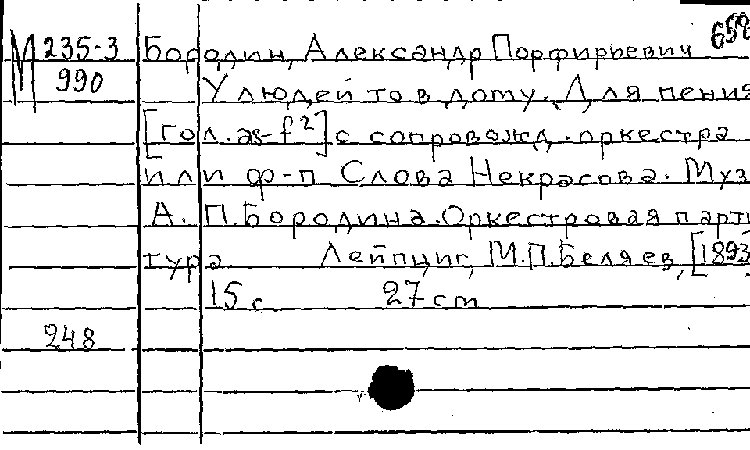 658
М 235-3 Бородин, Александр Порфирьевич
990 У людей то в дому. Для пения
[гол. as-f²] с сопровожд. оркестра
или ф-п Слова Некрасова. Муз
А. П. Бородина. Оркестровая парти
тура. Лейпциг, М. П. Беляев, [1893
15 с 27 cm
248